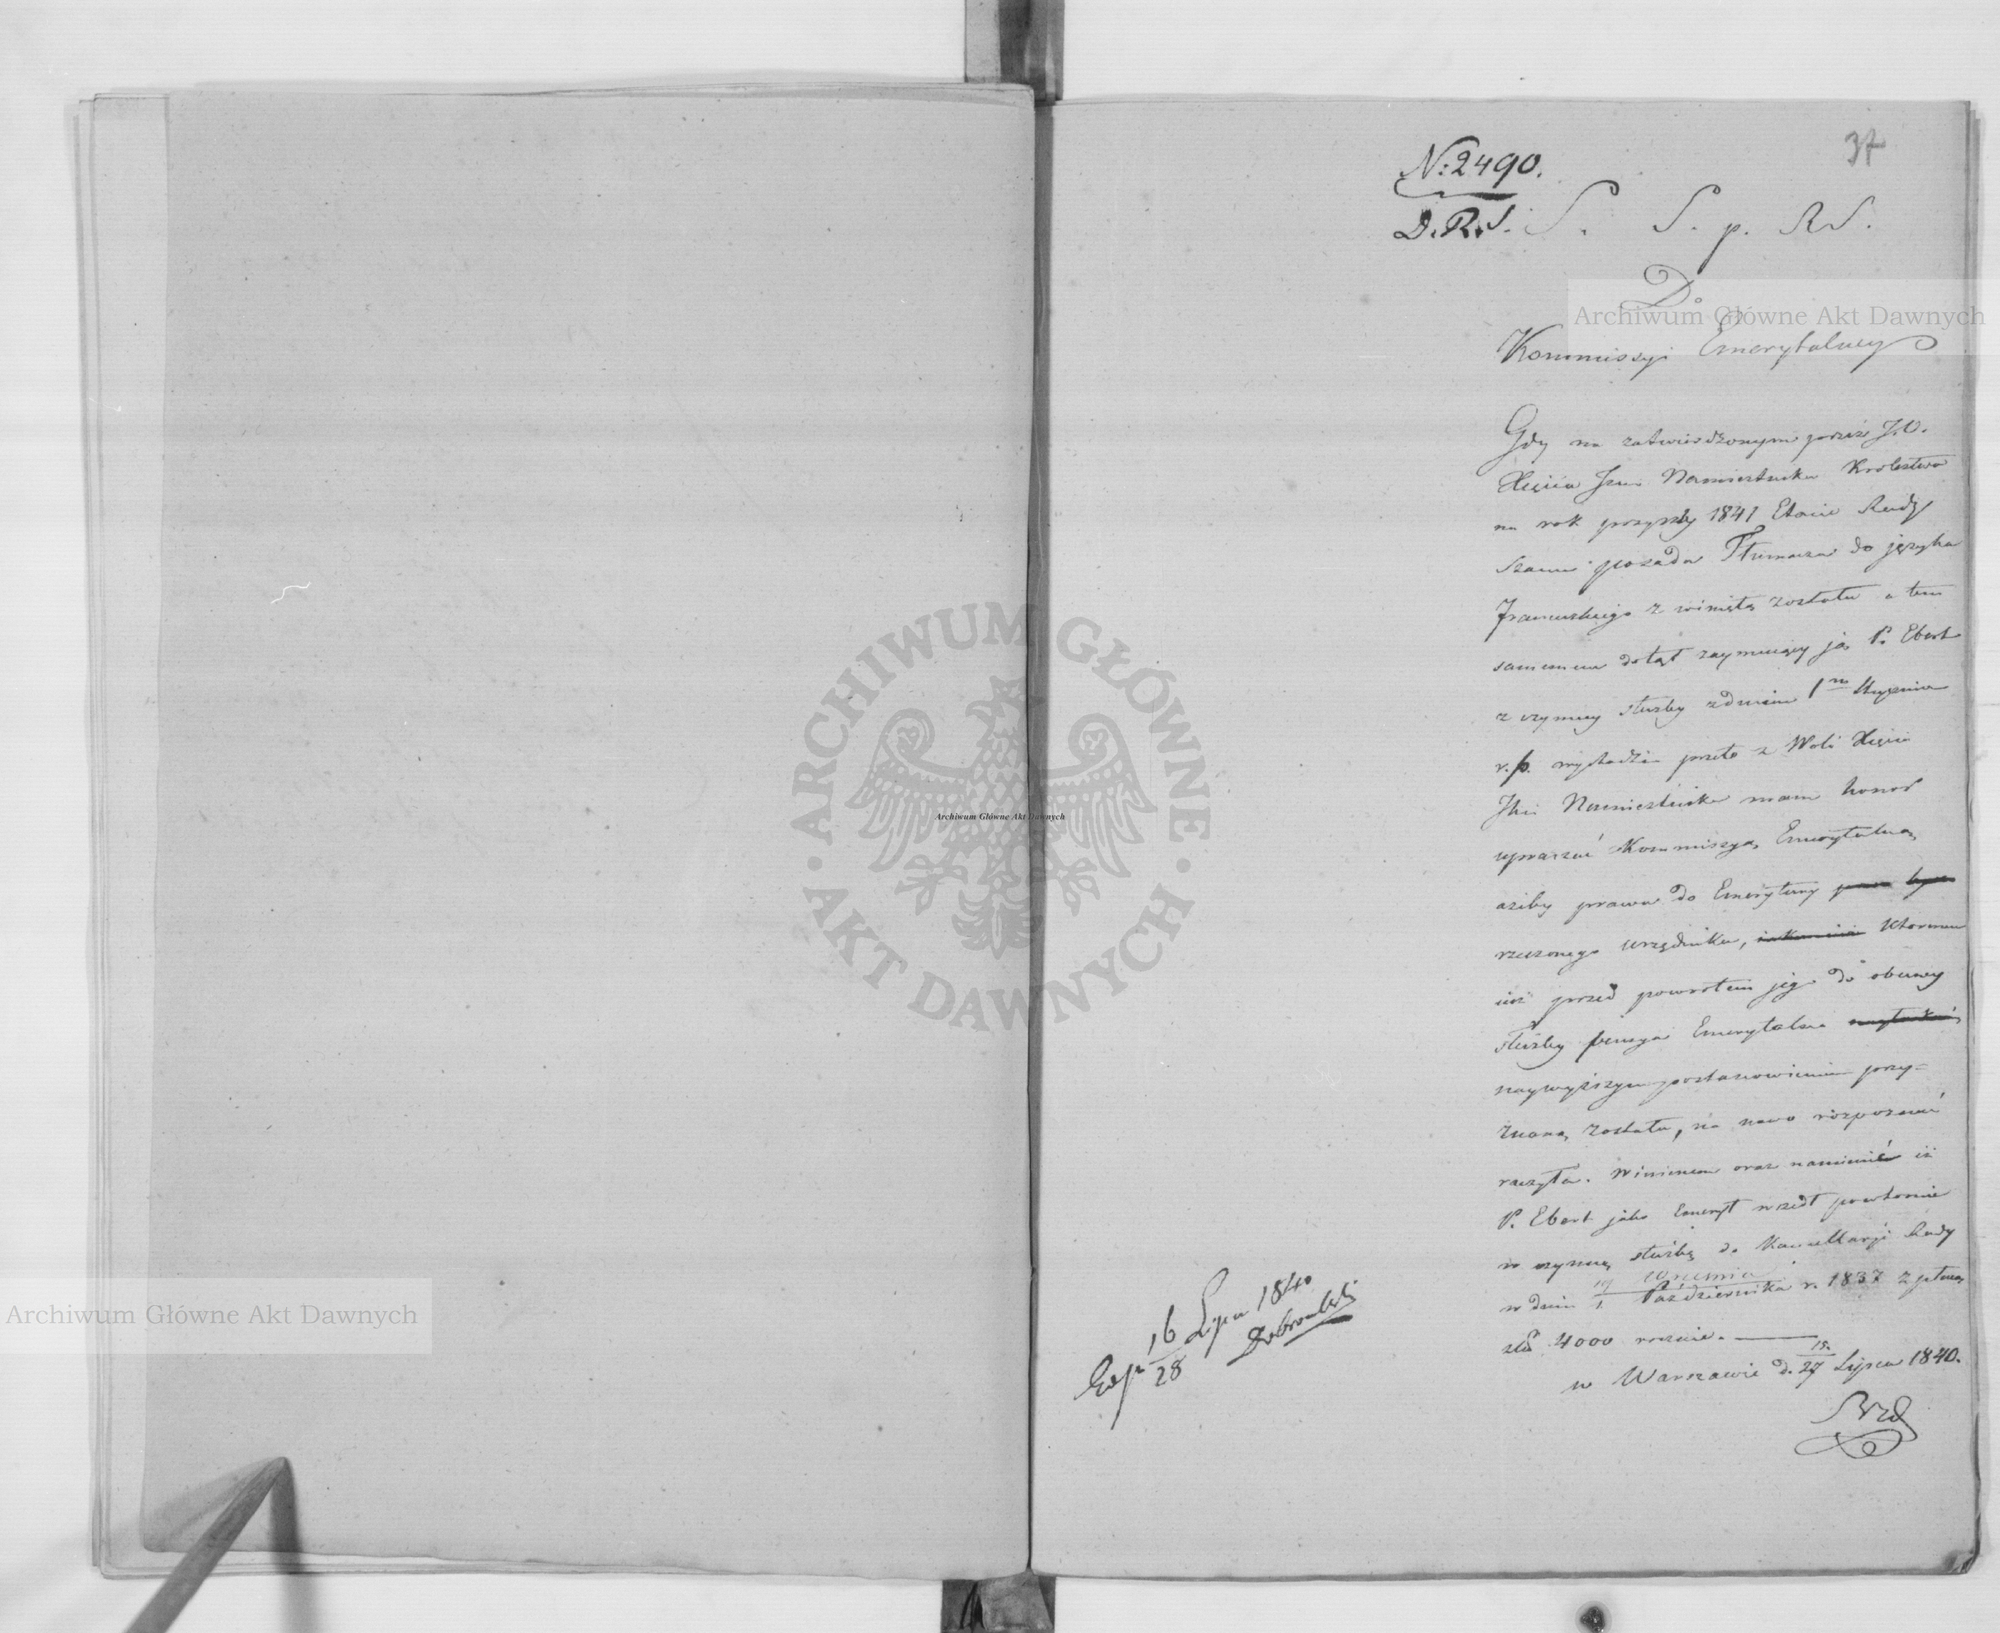 37
N: 2490.
D. R. S. S. S. p. RS.
Do
Kommissyi Emerytalney
Gdy na zatwierdzonym przez J.O.
Xięcia Jmci Namiestnika Królestwa
na rok przyszły 1841 Etacie Rady
Stanu posada Tłumacza do języka
francuskiego zwiniętą została a tem
samem dotąd zaymujący ją P. Ebert
z czynney służby z dniem 1m Stycznia
r. p. wychodzi przeto z Woli Xięcia
Jmci Namiestnika mam honor
upraszać Kommissyą Emerytalną,
ażeby prawa do Emerytury
rzeczonego urzędnika, któremu
już przed powrotem jego do obecney
służby pensya Emerytalna
naywyższym postanowieniem przy-
znaną została, na nowo rozpoznać
raczyła. Winienem oraz namienić iż
P. Ebert jako Emeryt wszedł powtórnie
w czynną służbę do Kancellaryi Rady
w dniu 19/1 Września/Października r. 1837 z płacą
złp. 4000 rocznie.
w Warszawie d. 15/27 Lipca 1840.
Exp. 16/28 Lipca 1840
Archiwum Główne Akt Dawnych
Archiwum Główne Akt Dawnych
Archiwum Główne Akt Dawnych
ARCHIWUM GŁÓWNE · AKT DAWNYCH ·